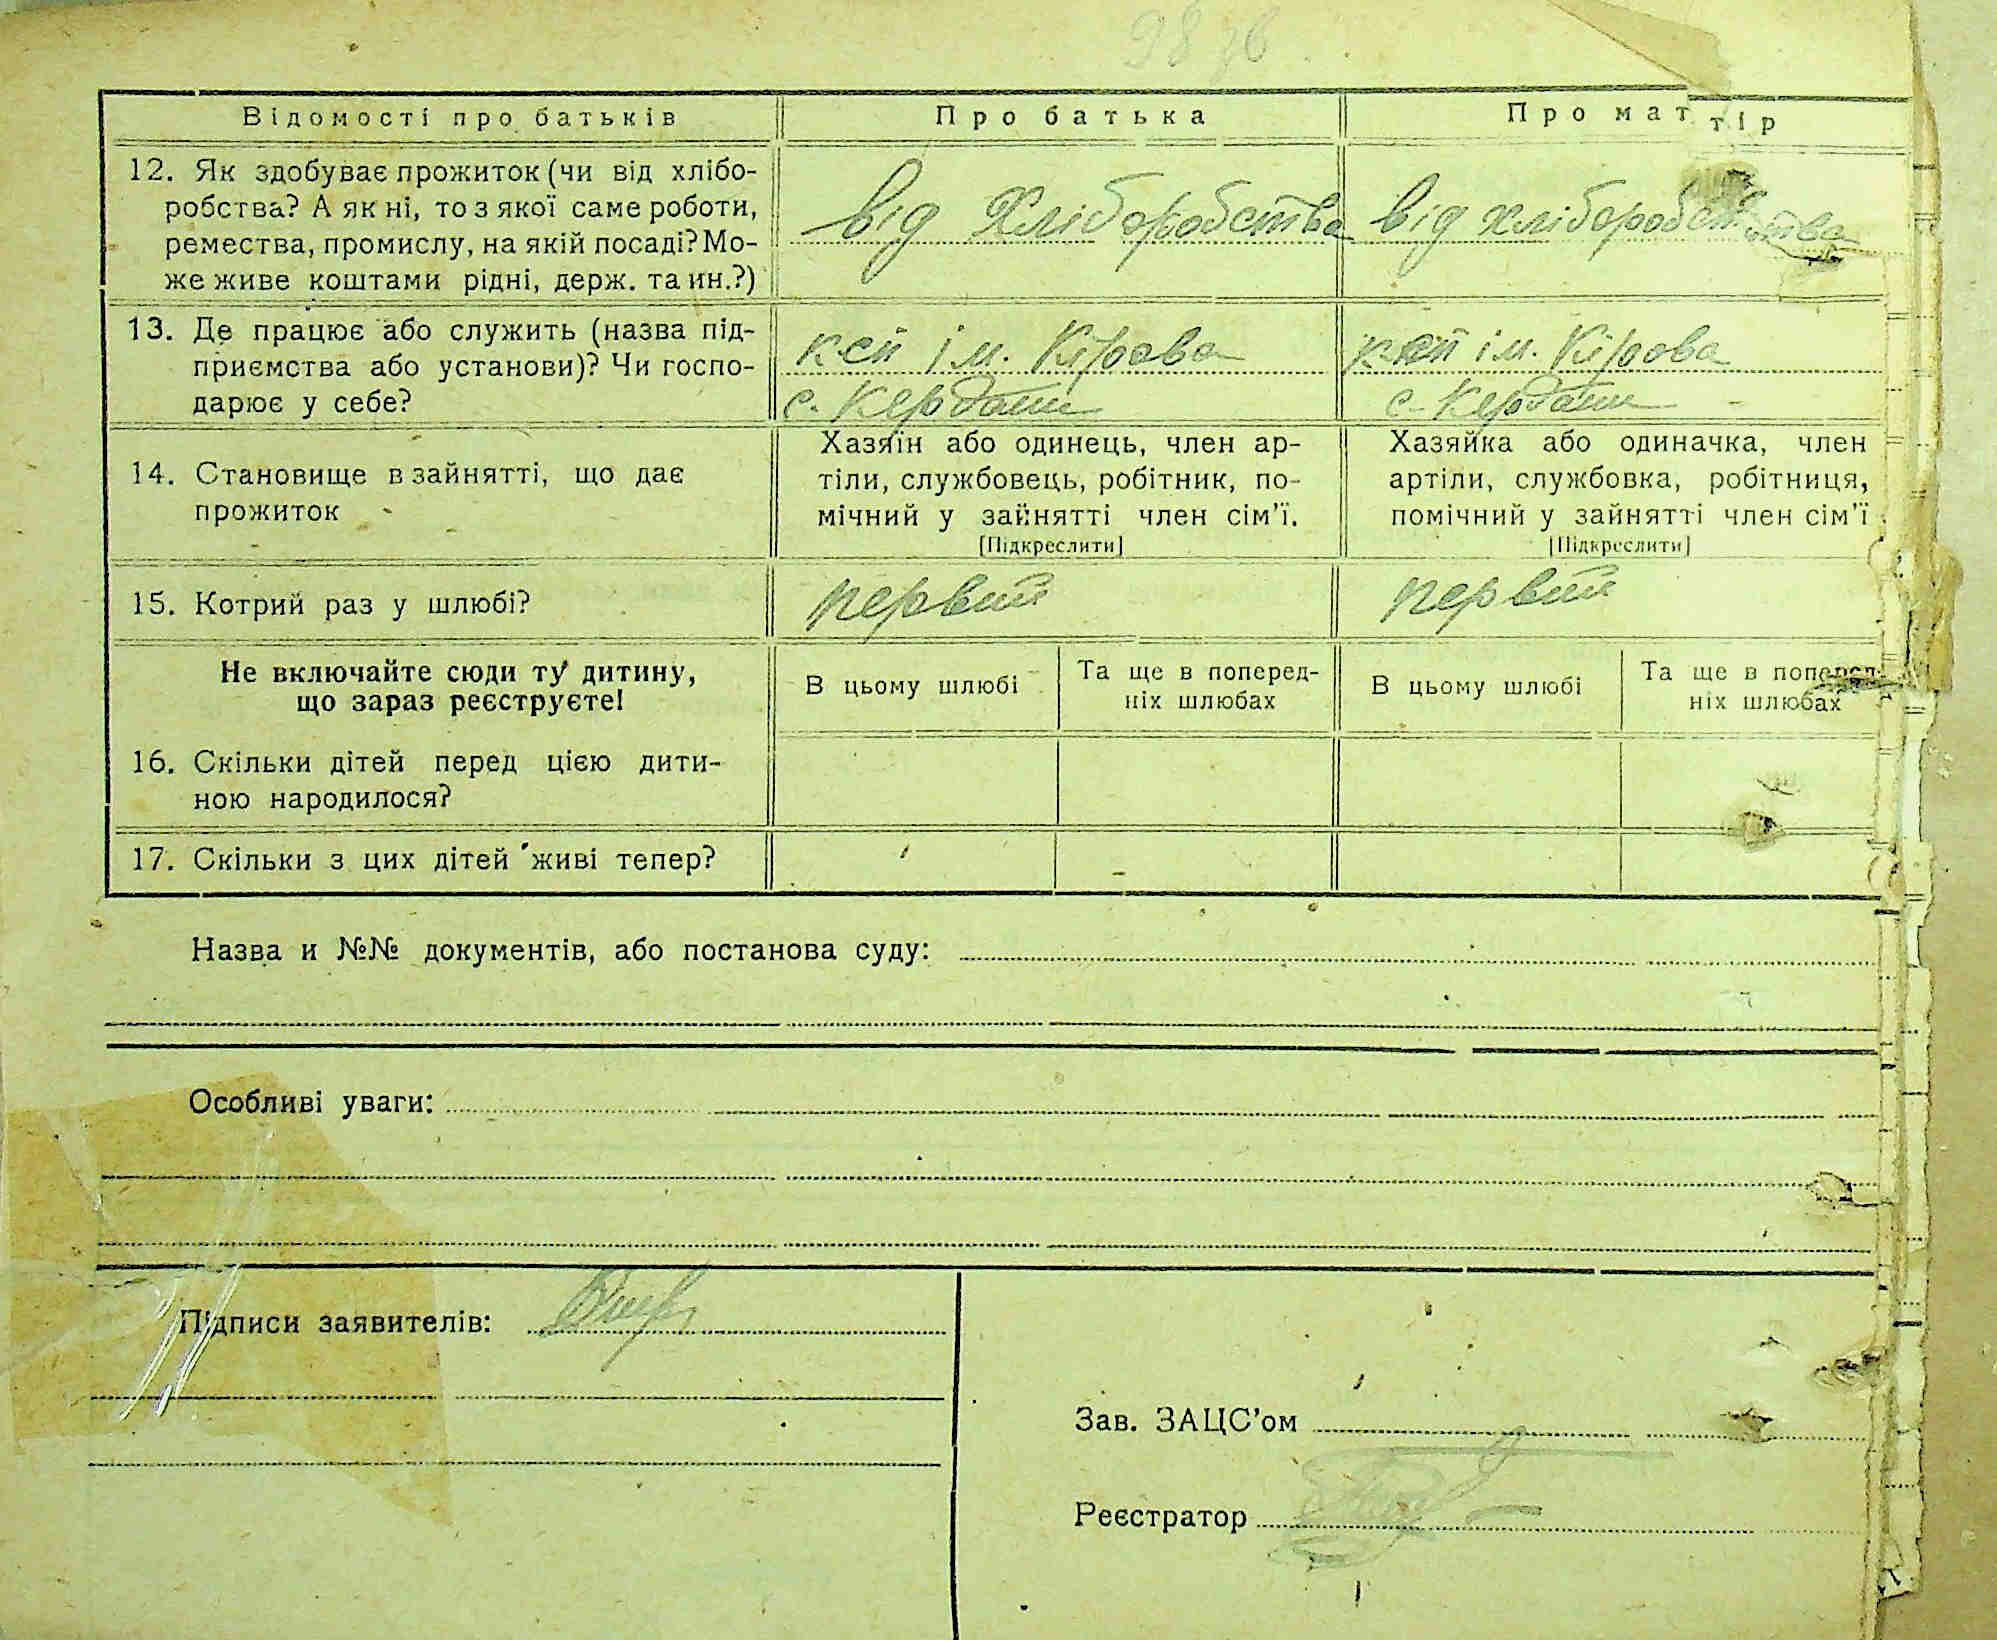 98 зв
Відомості про батьків
Про батька
Про матір
12. Як здобуває прожиток (чи від хлібо-
робства? А як ні, то з якої саме роботи,
ремества, промислу, на якій посаді? Мо-
же живе коштами рідні, держ. та ин.?)
від Хліборобства
від хліборобства
13. Де працює або служить (назва під-
приємства або установи)? Чи госпо-
дарює у себе?
ксп ім. Кірова
с. Кердани
ксп ім. Кірова
с. Кердани
14. Становище в зайнятті, що дає
прожиток
Хазяїн або одинець, член ар-
тіли, службовець, робітник, по-
мічний у зайнятті член сім’ї.
[Підкреслити]
Хазяйка або одиначка, член
артіли, службовка, робітниця,
помічний у зайнятті член сім’ї
[Підкреслити]
15. Котрий раз у шлюбі?
первий
первий
Не включайте сюди ту дитину,
що зараз реєструєте!
В цьому шлюбі
Та ще в поперед-
ніх шлюбах
В цьому шлюбі
Та ще в поперед-
ніх шлюбах
16. Скільки дітей перед цією дити-
ною народилося?
17. Скільки з цих дітей живі тепер?
Назва и №№ документів, або постанова суду:
Особливі уваги:
Підписи заявителів:
Зав. ЗАЦС’ом
Реєстратор